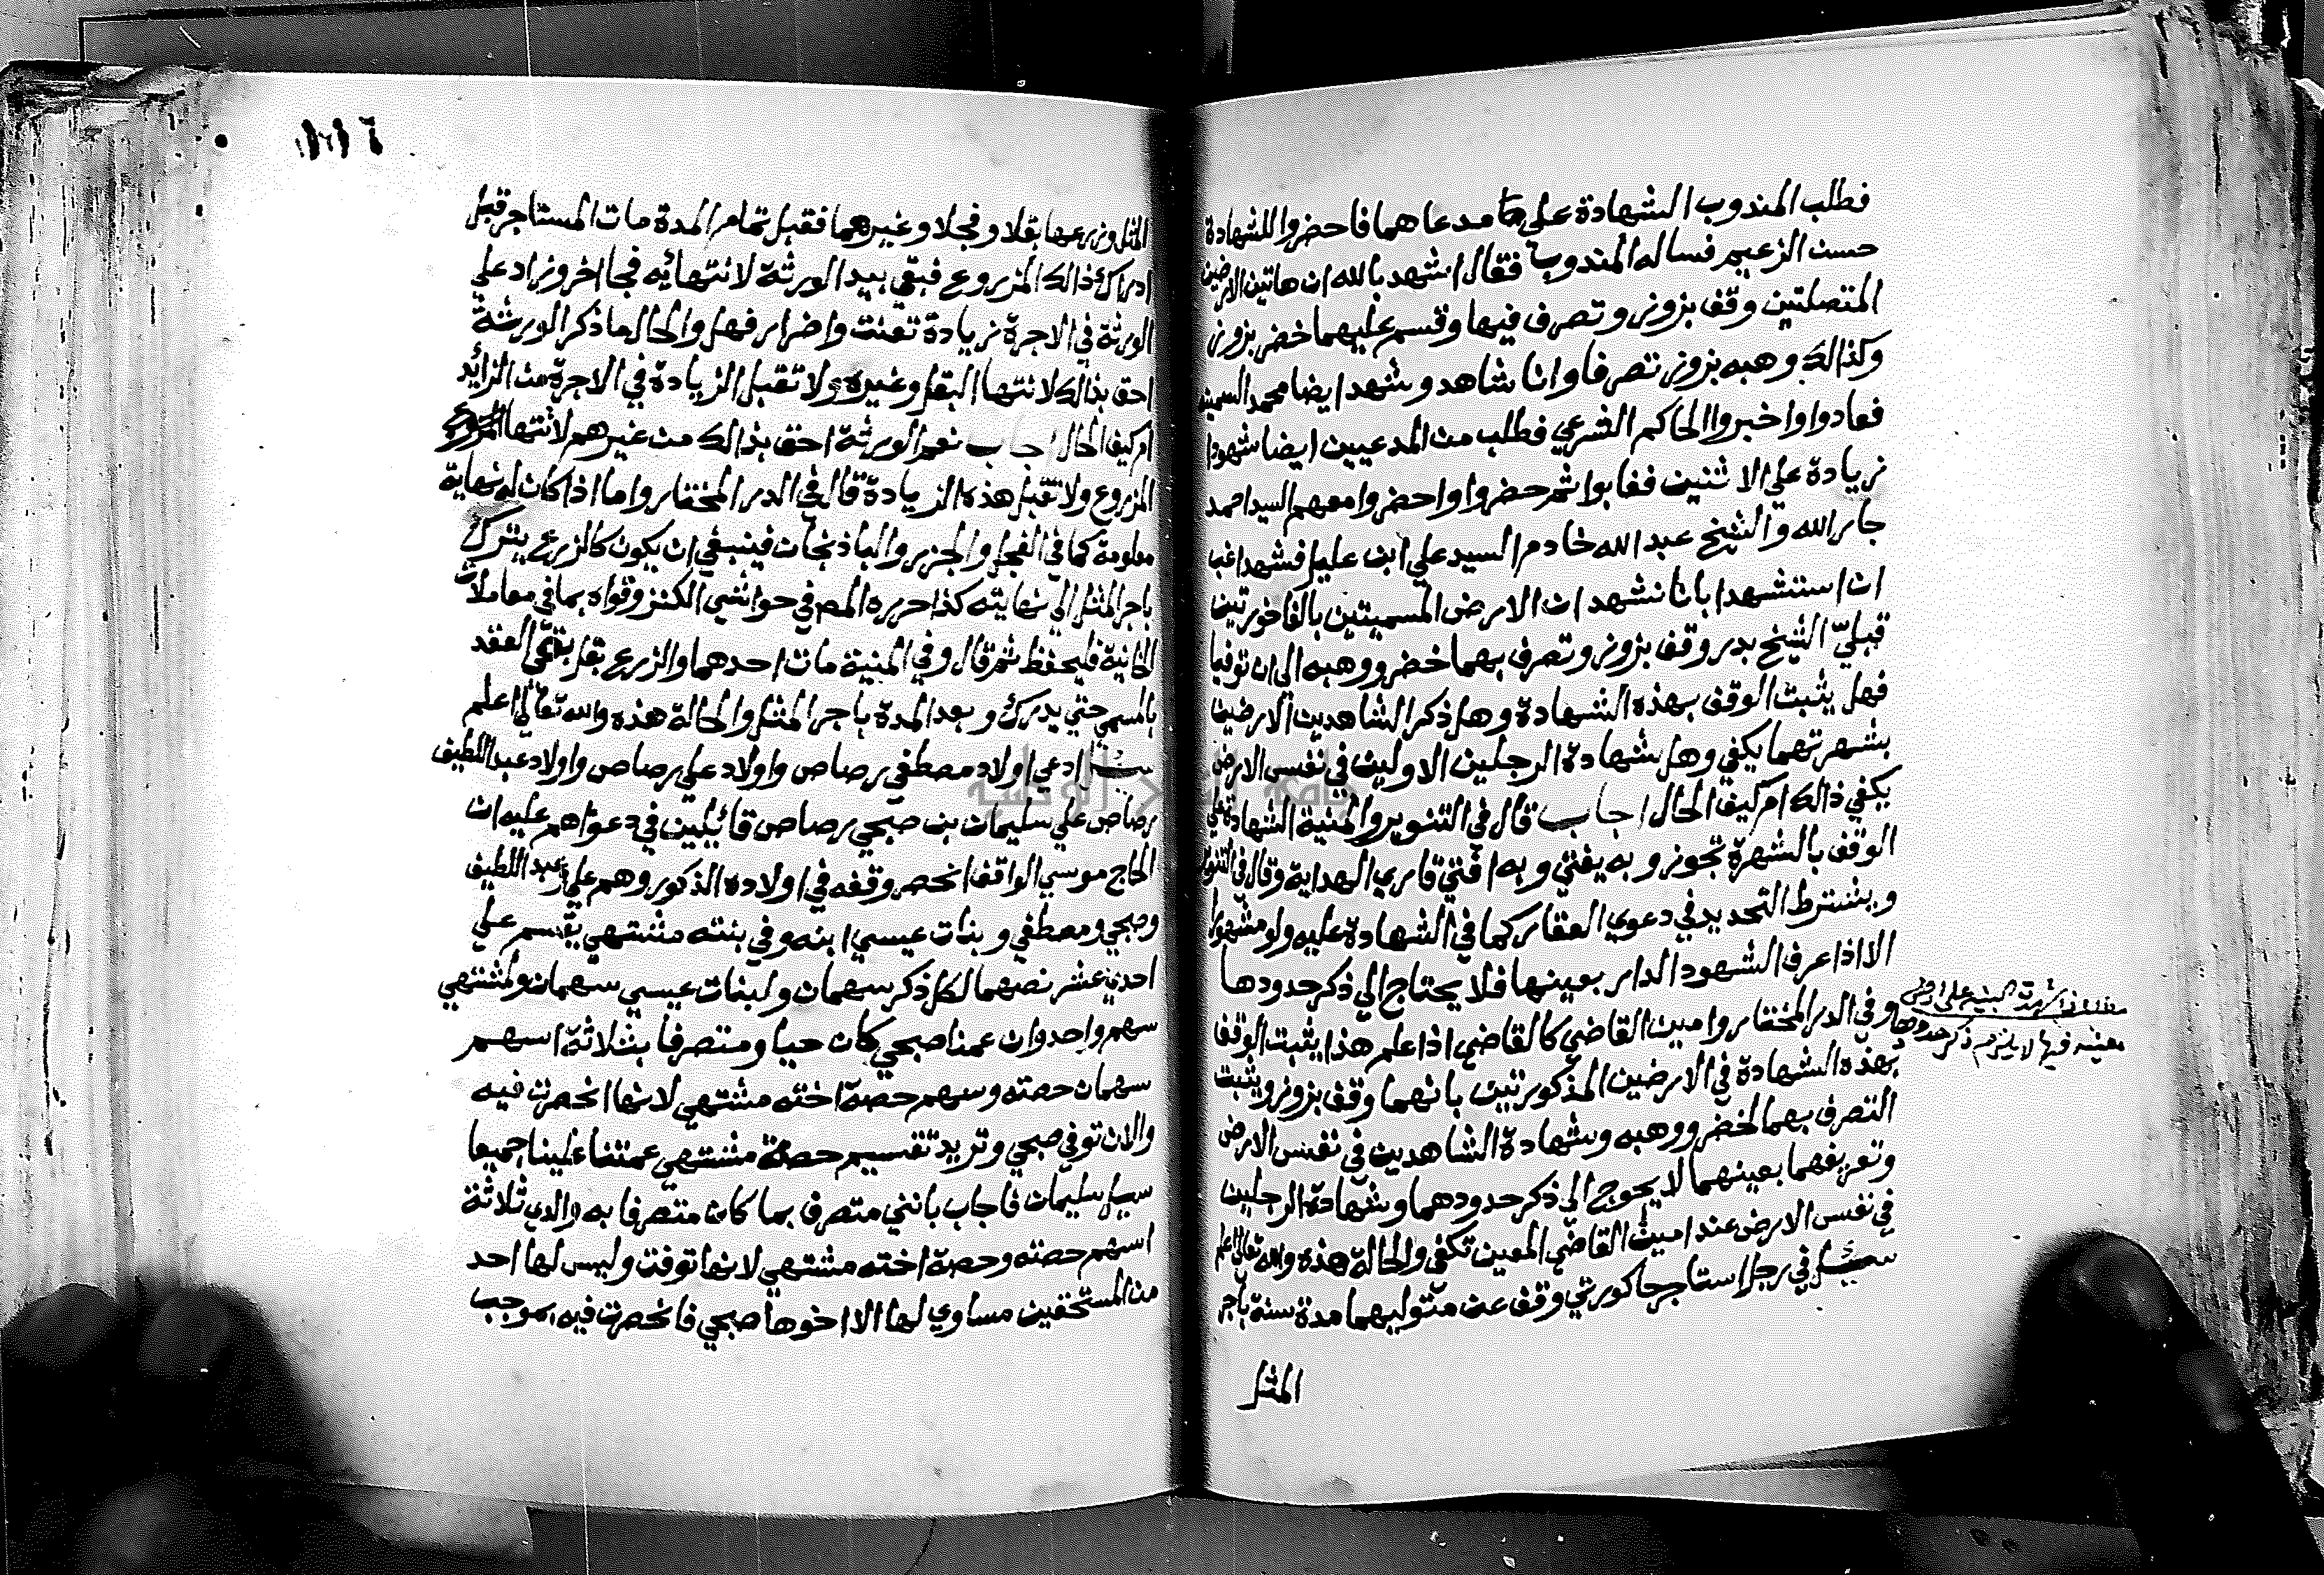 فطلب المندوب الشهادة على مدعاهما فاحضروا للشهادة
حسن الزعيم فساله المندوب فقال اشهد بالله ان هاتين الارضين
المتصلتين وقف بزوز وتصرف فيها وقسم عليهما خضر بزوز
وكذالك وهبه بزوز تصرفا وانا شاهد وشهد ايضا محمد السمينه
فعادوا واخبروا الحاكم الشرعي فطلب من المدعيين ايضا شهودا
زيادة على الاثنين فغابوا ثم حضروا واحضروا معهم السيد احمد
جار الله والشيخ عبد الله خادم السيد علي ابن عليل فشهدا غب
ان استشهدا باننا نشهد ان الارض المسميتين بالفاخورتين
قبليّ الشيخ بدر وقف بزوز وتصرف بهما خضر ووهبه الى ان توفيا
فهل يثبت الوقف بهذه الشهادة وهل ذكر الشاهدين الارضين
بشهرتهما يكفي وهل شهادة الرجلين الاولين في نفس الارض
يكفي ذالك ام كيف الحال اجاب قال في التنوير والمنية الشهادة على
الوقف بالشهرة تجوز وبه يفتي وبه افتي قاري الهداية وقال في التنوير
ويشترط التحديد في دعوي العقار كما في الشهادة عليه ولو مشهورا
الا اذا عرف الشهود الدار بعينها فلا يحتاج الى ذكر حدودها
وفي الدر المختار وامين القاضي كالقاضي اذا علم هذا يثبت الوقف
بهذه الشهادة في الارضين المذكورتين بانهما وقف بزوز ويثبت
التصرف بهما لخضر ووهبه وشهادة الشاهدين في نفس الارض
وتعريفهما بعينهما لا يحوج الى ذكر حدودهما وشهادة الرجلين
في نفس الارض عند امين القاضي المعين تكفي والحالة هذه والله تعالى اعلم
سئل في رجل استاجر حاكورتي وقف عن متوليهما مدة سنة باجر
المثل
البينه على ارض
معينه فيها لا يلزم ذكر حدودها
المثل وزرعها بقلا وفجلا وغيرهما فقبل تمام المدة مات المستاجر قبل
ادراك ذالك المزروع فبقي بيد الورثة لانتهائه فجا اخر وزاد على
الورثة في الاجرة زيادة تعنت واضرار فهل والحال ما ذكر الورثة
احق بذالك لانتها البقل وغيره ولا تقبل الزيادة في الاجرة من الزائد
ام كيف الحال اجاب نعم الورثة احق بذالك من غيرهم لانتها
المزروع ولا تقبل هذه الزيادة قال في الدر المختار واما اذا كان له نهاية
معلومة كما في الفجل والجزر والباذنجان فينبغي ان يكون كالزرع يترك
باجر المثل الى نهايته كذا حرره المص في حواشي الكنز وقواه بما في معاملات
الخانية فليحفظ ثم قال وفي المنية مات احدهما والزرع بقل بقي العقد
بالمسمي حتي يدرك وبعد المدة باجر المثل والحالة هذه والله تعالى اعلم
سئل ادعي اولاد مصطفي رصاص واولاد علي رصاص واولاد عبد اللطيف
رصاص علي سليمان بن صبحي رصاص قائلين في دعواهم عليه ان
الحاج موسي الواقف انحصر وقفه في اولاده الذكور وهم علي وعبد اللطيف
وصبحي ومصطفي وبنات عيسي ابنه وفي بنته مشتهي يقسم علي
احدي عشر نصهما لكل ذكر سهمان ولبنات عيسي سهمان ولمشتهي
سهم واحد وان عمنا صبحي كان حيا ومتصرفا بثلاثة اسهم
سهمان حصته وسهم حصة اخته مشتهي لانها انحصرت فيه
والان توفي صبحي وتريد تقسيم حصة مشتهي عمتنا علينا جميعا
سيل سليمان فاجاب بانني متصرف بما كان متصرفا به والدي ثلاثة
اسهم حصته وحصة اخته مشتهي لانها توفت وليس لها احد
من المستحقين مساوي لها الا اخوها صبحي فانحصرت فيه بموجب